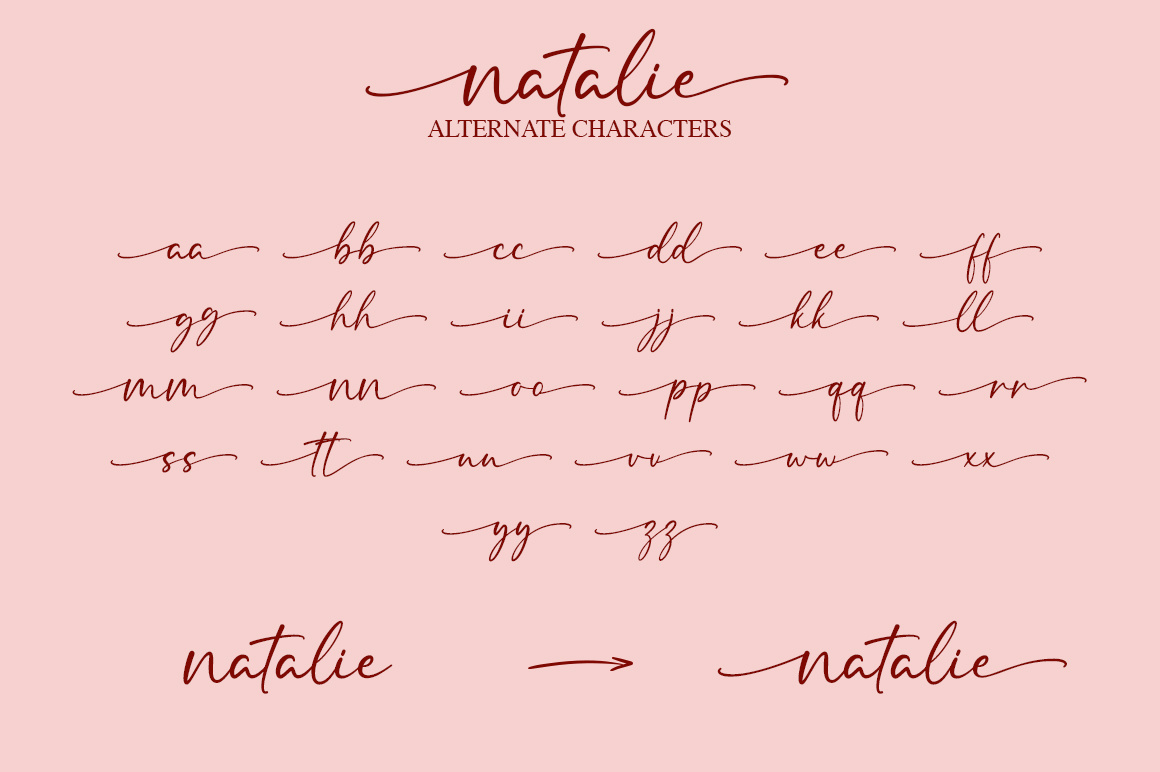 natalie
ALTERNATE CHARACTERS
aa bb cc dd ee ff
gg hh ii jj kk ll
mm nn oo pp qq rr
ss tt uu vv ww xx
yy zz
natalie natalie